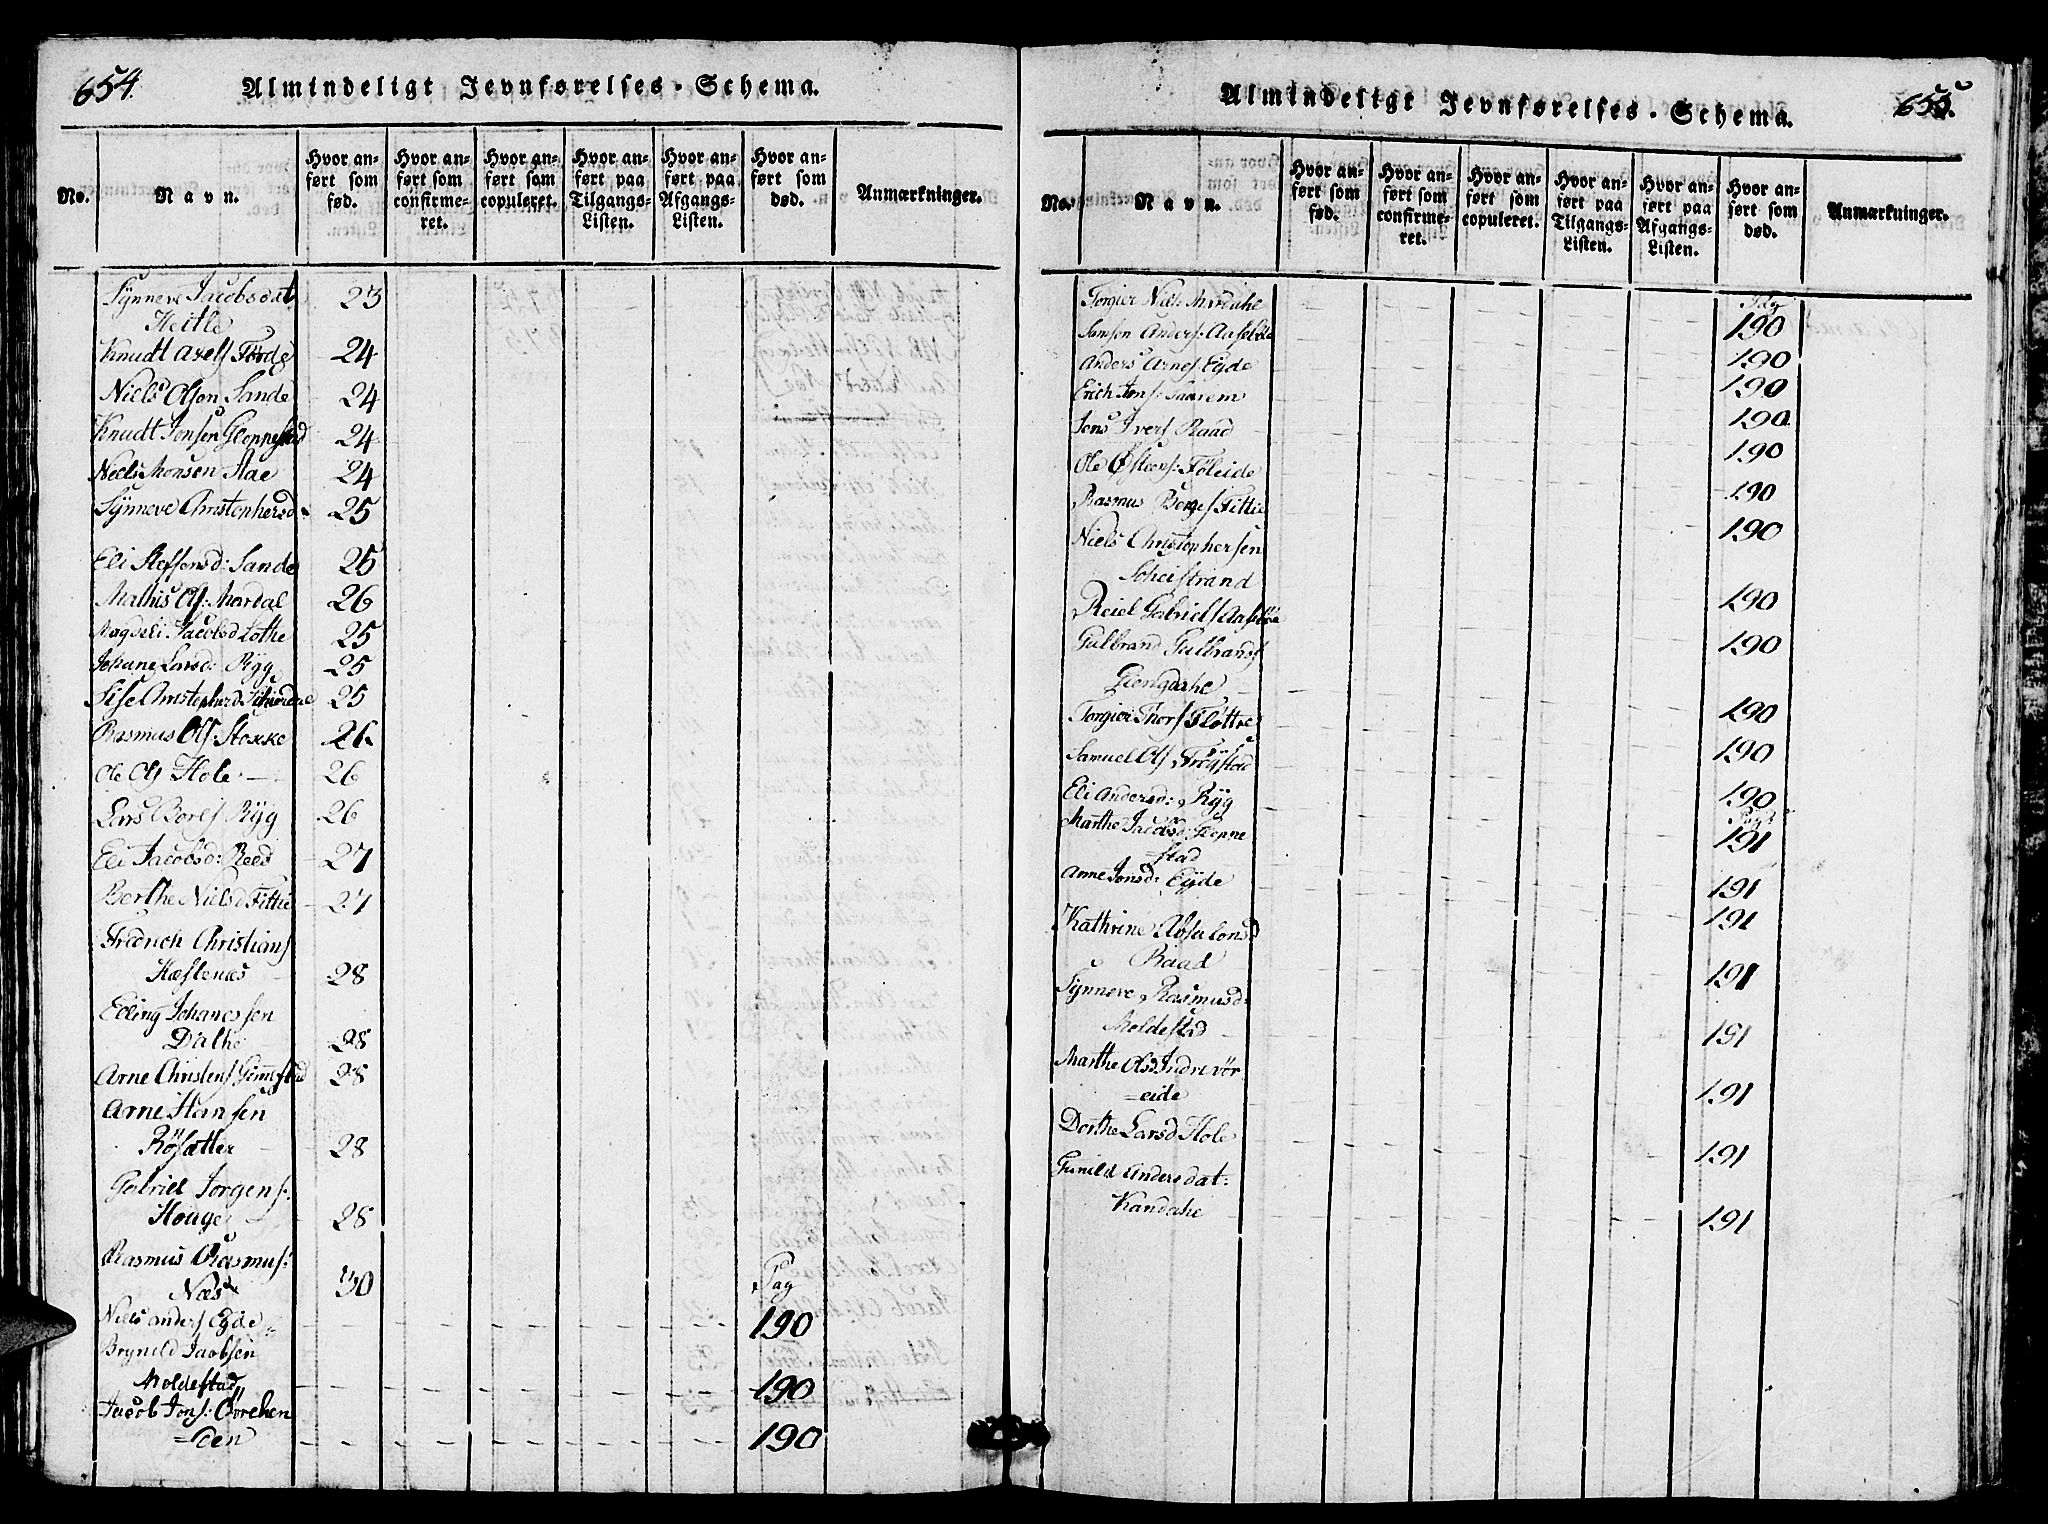 654.
Almindeligt Jevnførelses-Schema.
No.
Navn.
Hvor anført som fød.
Hvor anført som confirmeret.
Hvor anført som copuleret.
Hvor anført paa Tilgangs-Listen.
Hvor anført paa Afgangs-Listen.
Hvor anført som død.
Anmærkninger.
Synneve Jacobsdat 23
Heitle
Knudt Axels Förde 24
Niels Olson Sande 24
Knudt Jonsen Gloppestad 24
Niels Monsen Stae 24
Synneve Christophersd 25
Eli Steffensd: Sande 25
Mathis Ols: Mardal 26
Magdeli Jacobsd Lothe 25
Johane Larsd: Ryg 25
Sise Christophersd 25
Rasmus Ols Stokke 26
Ole Ols Hole 26
Lars Bores Ryg 26
Eli Jacobsd: Reed 27
Berthe Nielsd Fittie 27
Fredrich Christians
Hæstenæs 28
Elling Johanessen
Dalhe 28
Arne Christens Gimestad 28
Arne Hansen
Rösætter 28
Gabriel Jorgens:
Houge 28
Rasmus Rasmus:
Næs 30 Pag
Niels Anders Eyde 190
Brynild Jacobsen
Moldestad 190
Jacob Jons: Övrehen
=den 190
655.
Almindeligt Jevnførelses-Schema.
No.
Navn.
Hvor anført som fød.
Hvor anført som confirmeret.
Hvor anført som copuleret.
Hvor anført paa Tilgangs-Listen.
Hvor anført paa Afgangs-Listen.
Hvor anført som død.
Anmærkninger.
Torgier Niels: Mardahl Pag 190
Samson Anders: Aaseböe 190
Anders Arnes Eyde 190
Erich Jons: Saarem 190
Jens Ivers Raad 190
Ole Østens: Föleide 190
Rasmus Borges Fittie 190
Niels Christophersen
190
Reiel Gabriels Aasebøe 190
Gulbrand Gulbrands
Giengdahl 190
Torgier Thors Flöttre 190
Samuel Ols Fröystad 190
Eli Andersd: Ryg Pag:
Marthe Jacobsd: Gloppe 191
stad
Anne Jonsd: Eyde 191
Kathrine Absalonsd 191
Raad
Synneve Rasmusd: 191
Moldestad 191
Marthe Olsd Indrevör
=eide 191
Dorthe Larsd Hole 191
Gunild Andersdat:
Kandahl 191